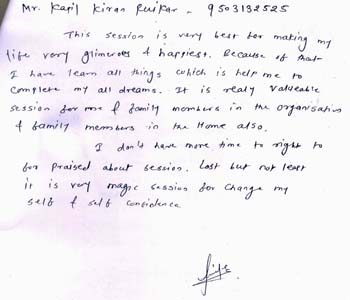 Mr. Kapil Kiran Ruikar - 9503132525
This session is very best for making my
life very glimeroes & happiest. Because of that
I have learn all things which is help me to
complete my all dreams. It is realy valueable
session for me & family members in the organisation
& family members in the Home also.
I don't have more time to right to
for praised about session. Last but not least
it is very magic session for change my
self & self confidence